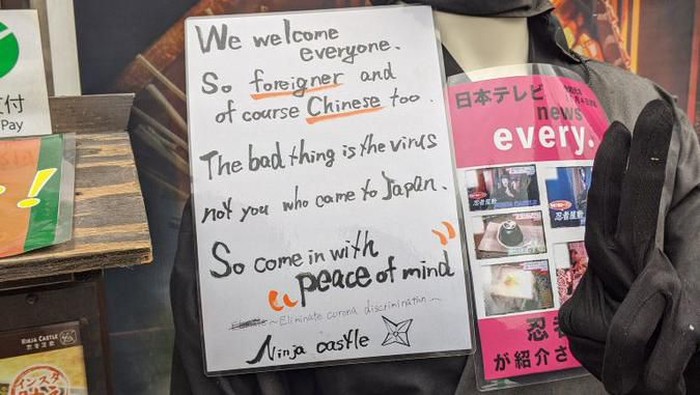 We welcome
everyone.
So foreigner and
of course Chinese too.
The bad thing is the virus
not you who came to Japan.
So come in with
"peace of mind"
~Eliminate corona discrimination~
Ninja castle
付
Pay
!
NINJA CASTLE
インスタ
日本テレビ
news
every.
忍
が紹介さ